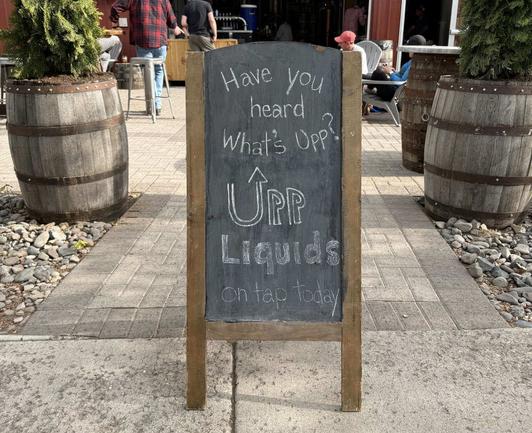 Have you
heard
What's Upp?
Upp
Liquids
on tap today